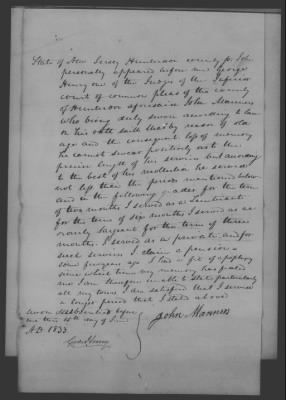 State of New Jersey Hunterdon county ss
personally appeared before me George
Henry one of the Judges of the Inferior
court of common pleas of the county
of Hunterdon aforesaid John Manners
who being duly sworn according to law
on his oath saith that by reason of old
age and the consequent loss of memory
he cannot swear positively as to the
precise length of his service but according
to the best of his recollection he served
not less than the periods mentioned below
and in the following grades for the term
of two months I served as a Lieutenant
for the term of six months I served as an
orderly sargent for the term of three
months I served as a private and for
such services I claim a pension
some years ago I had a fit of apoplexy
since which time my memory has failed
me I am therefore unable to state particularly
all my tours I am satisfied that I served
a longer period that I stated above
Sworn & subscribed before
me this day of June
AD. 1833. John Manners
Geo Henry